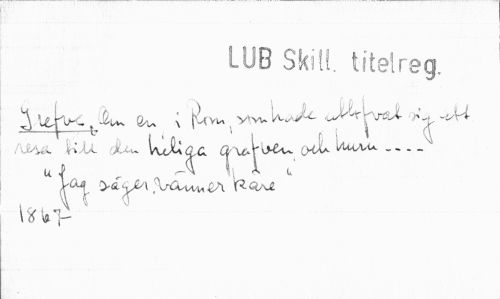 LUB Skill. titelreg.
Grefve, Om en i Rom, som hade utlofvat sig att
resa till den heliga grafven, och huru ----
"Jag säger, vänner käre"
1867